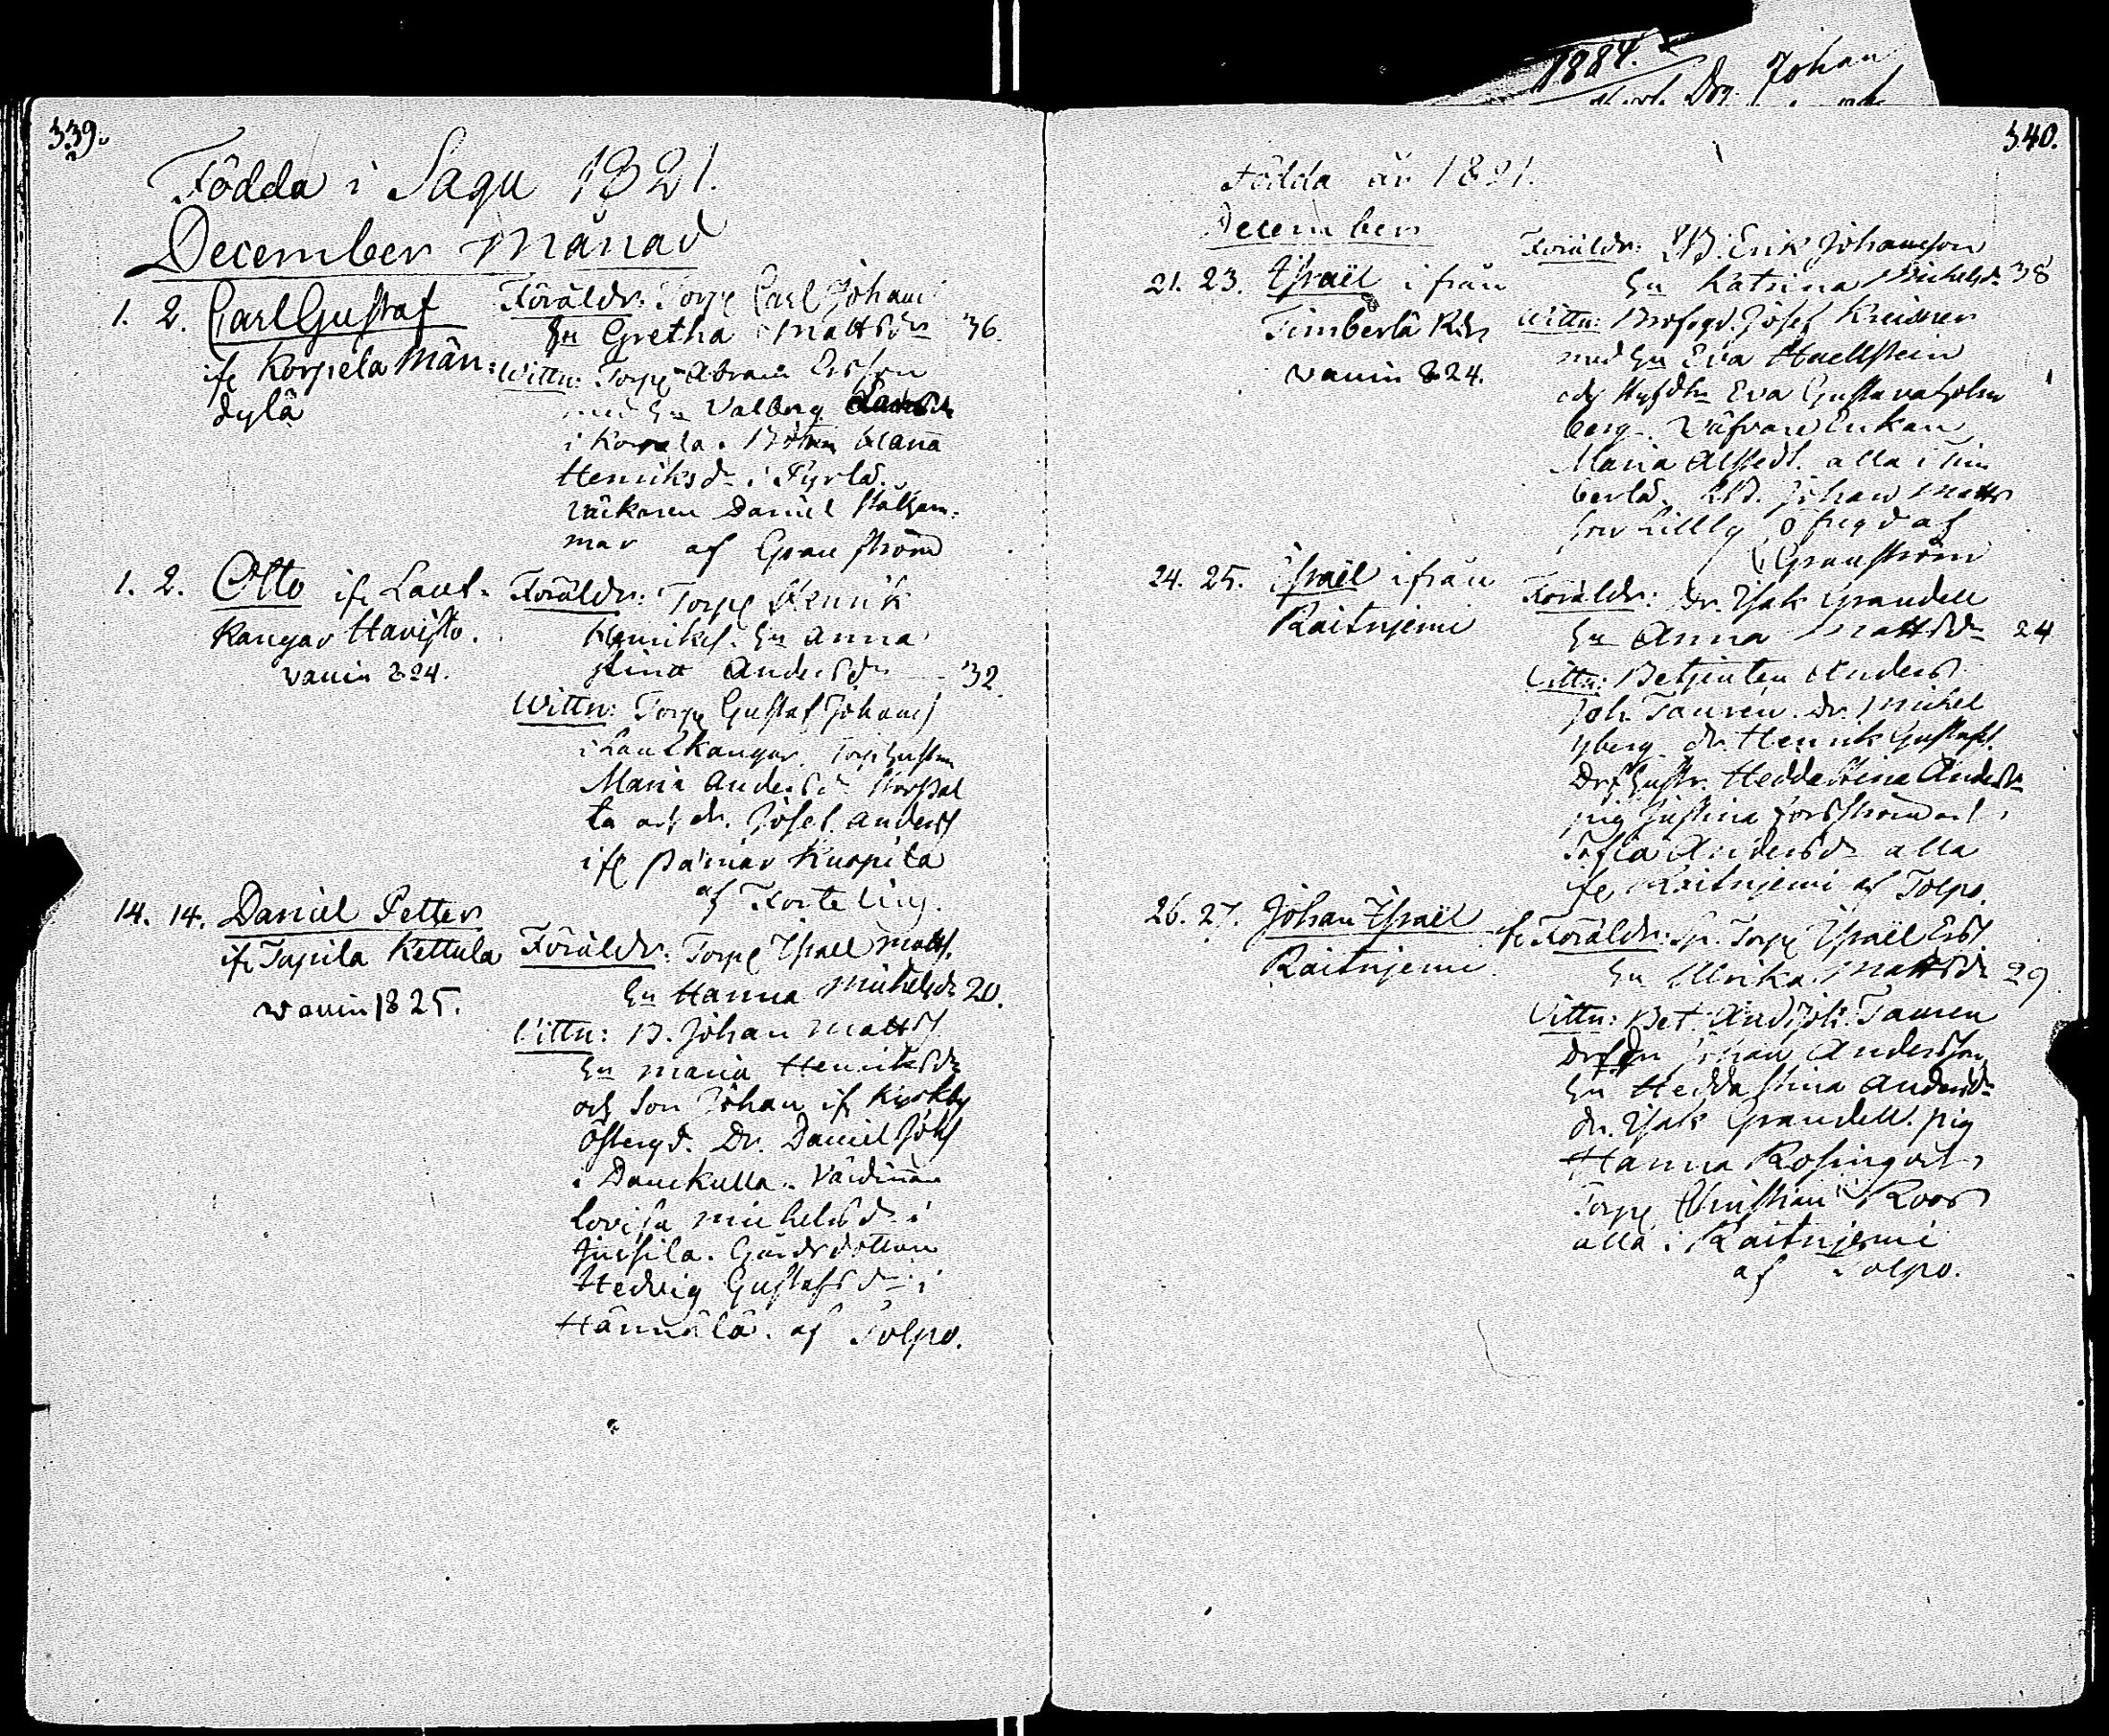 339.
Födda i Sagu 1821.
December Månad
1. 2. Carl Gustaf
ifr Korpela Män=
dylä
Föräldr: Torp Carl Johans
Hu Gretha Mattsdr 36.
Wittn: Torp Abram Ersson
med Hu Valborg
i Korpela. Hanna
Henriksdr i Pyrlä.
Väckaren Daniel Stålham=
mar af Granström
1. 2. Otto ifr Laut-
kangar Havisto.
vaccin 824.
Föräldr: Torp Henrik
Henriks. Hu Anna
Stina Andersdr 32.
Wittn: Torp Gustaf Johans
i Lautkangar. Torp hustru
Maria Andersdr
ta och dr. Josef Anders
ifr Pämar Kuopila
af Forteling.
14. 14. Daniel Petter
ifr Tapila Kettula
vaccin 1825.
Föräldr: Torp Israel Matts.
Hu Hanna Michelsdr 20.
Vittn: B. Johan Matts
Hu Maria Henriksdr
och Son Johan ifr Kyrkby
Östergd. Dr. Daniel Johs
i Danskulla. Värdinnan
Lovisa Michelsdr i
Jussila. Gårdsdottren
Hedvig Gustafsdr i
Hännälä. af Tolpo.
1884.
Dr. Johan
340.
Födda år 1821.
December
21. 23. Israël ifrån
Timberlä
vaccin 824.
Föräldr: B. Erik Johansson
Hu Katrina Michelsdr 38
Wittn: Josef Kreisner
med Hu Eva Haellstein
och Eva Gustava Holm
berg. Enkan
Maria Alstedt. alla i Tim
berlä. B. Johan Matts
son Lillby öfregd af
Granström
24. 25. Israël ifrån
Raitnjemi
Föräldr: Dr. Isak Grandell
Hu Anna Mattsdr 24
Vittn: Betjenten Anders
Joh. Taurén. Dr. Michel
Nyberg. dr. Henrik Gustafs.
Hedda Stina Andersdr
pig Justina Forsström och
Sofia Andersdr alla
ifr Raitnjemi af Tolpo.
26. 27. Johan Israël ifr
Raitnjemi
Föräldr: Torp Israël Ers
Hu Ulrika Mattsdr 29
Vittn: Bet. And. Joh. Tauren
Johan Andersson
Hu Hedda Stina Andersdr
dr. Isak Grandell. pig
Hanna Rosing och
Torp Christian Roos
alla i Raitnjemi
af Tolpo.